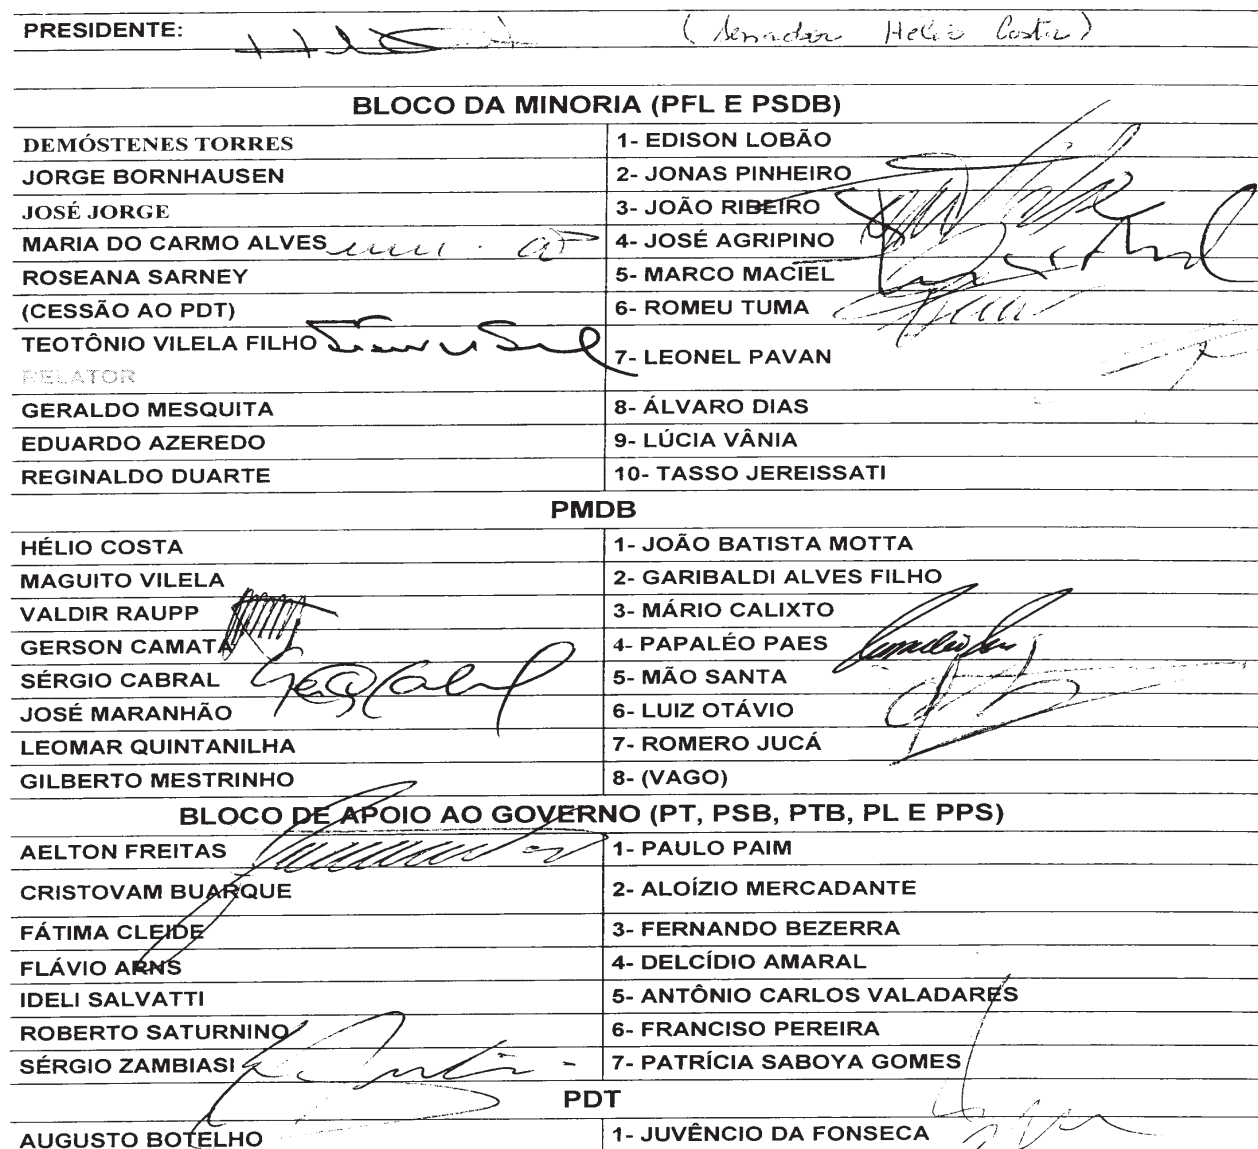 PRESIDENTE: (Senador Hélio Costa)
BLOCO DA MINORIA (PFL E PSDB)
DEMÓSTENES TORRES 1- EDISON LOBÃO
JORGE BORNHAUSEN 2- JONAS PINHEIRO
JOSÉ JORGE 3- JOÃO RIBEIRO
MARIA DO CARMO ALVES 4- JOSÉ AGRIPINO
ROSEANA SARNEY 5- MARCO MACIEL
(CESSÃO AO PDT) 6- ROMEU TUMA
TEOTÔNIO VILELA FILHO 7- LEONEL PAVAN
RELATOR
GERALDO MESQUITA 8- ÁLVARO DIAS
EDUARDO AZEREDO 9- LÚCIA VÂNIA
REGINALDO DUARTE 10- TASSO JEREISSATI
PMDB
HÉLIO COSTA 1- JOÃO BATISTA MOTTA
MAGUITO VILELA 2- GARIBALDI ALVES FILHO
VALDIR RAUPP 3- MÁRIO CALIXTO
GERSON CAMATA 4- PAPALÉO PAES
SÉRGIO CABRAL 5- MÃO SANTA
JOSÉ MARANHÃO 6- LUIZ OTÁVIO
LEOMAR QUINTANILHA 7- ROMERO JUCÁ
GILBERTO MESTRINHO 8- (VAGO)
BLOCO DE APOIO AO GOVERNO (PT, PSB, PTB, PL E PPS)
AELTON FREITAS 1- PAULO PAIM
CRISTOVAM BUARQUE 2- ALOÍZIO MERCADANTE
FÁTIMA CLEIDE 3- FERNANDO BEZERRA
FLÁVIO ARNS 4- DELCÍDIO AMARAL
IDELI SALVATTI 5- ANTÔNIO CARLOS VALADARES
ROBERTO SATURNINO 6- FRANCISO PEREIRA
SÉRGIO ZAMBIASI 7- PATRÍCIA SABOYA GOMES
PDT
AUGUSTO BOTELHO 1- JUVÊNCIO DA FONSECA